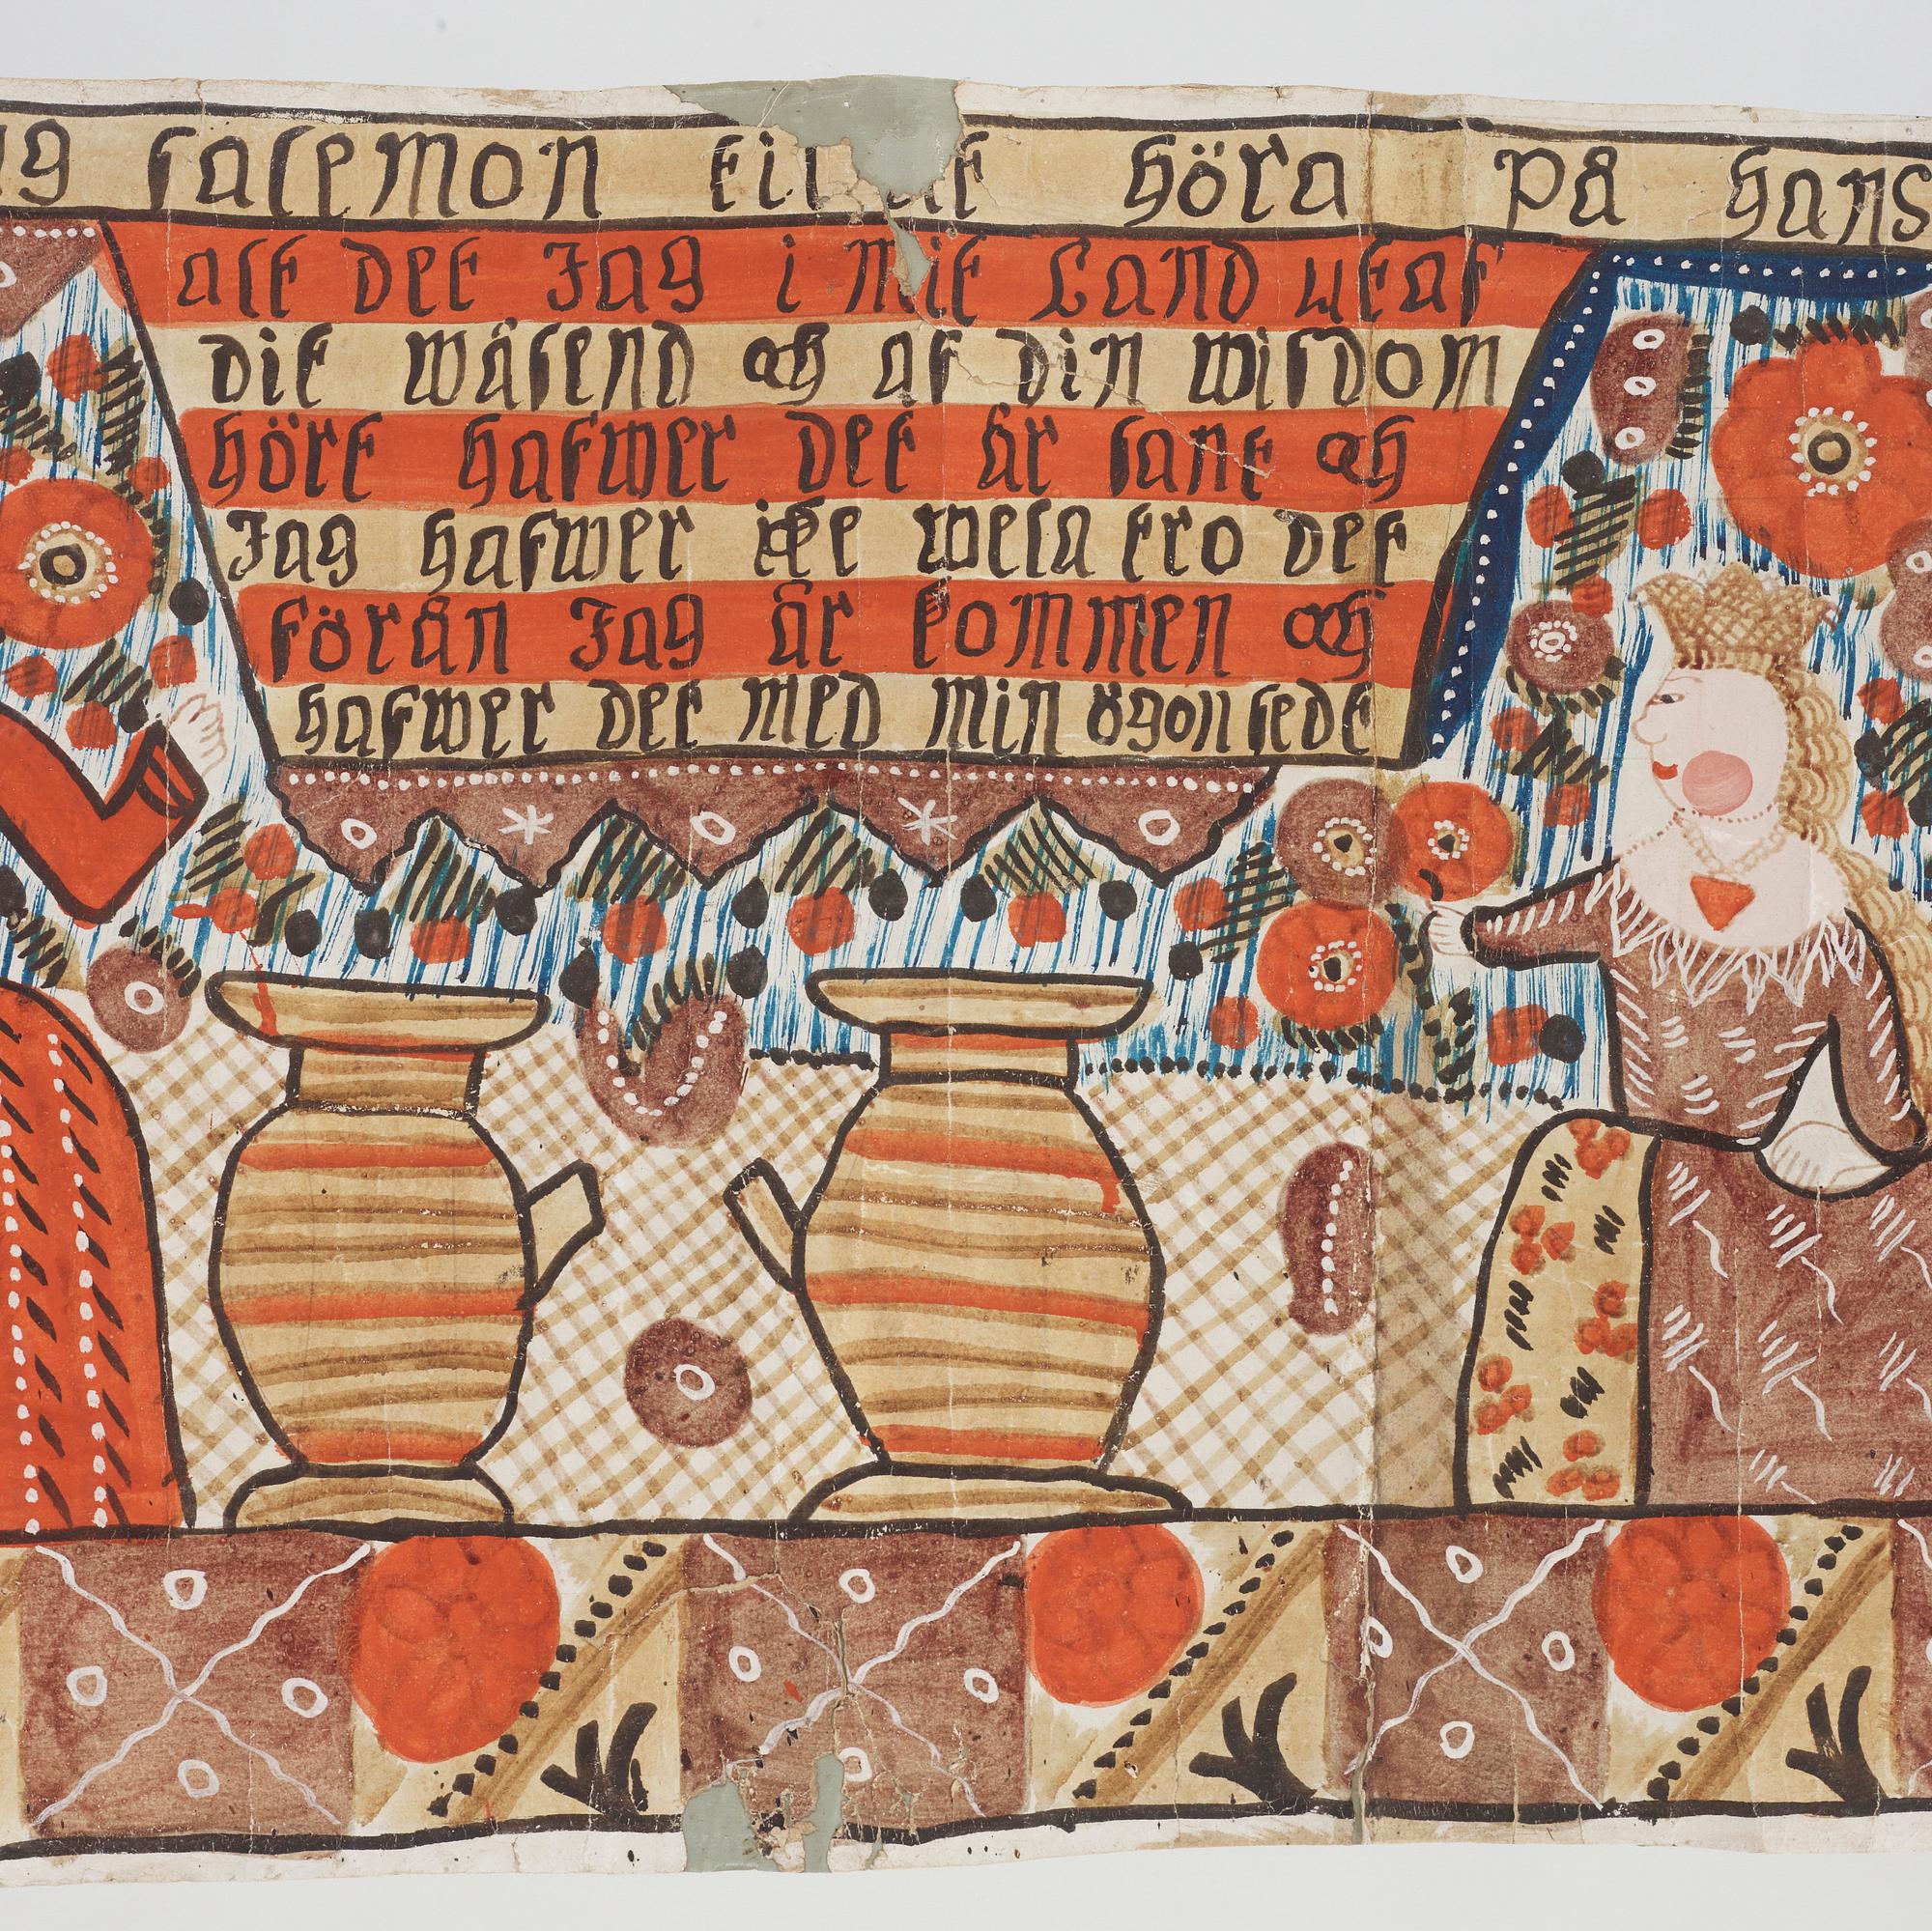 salemon höra på hans
alt det Jag i mit Land utaf
dit wäsend och af din wisdom
hört hafwer det är sant och
Jag hafwer icke wela tro det
förän Jag är kommen och
hafwer det med min ögon sedt